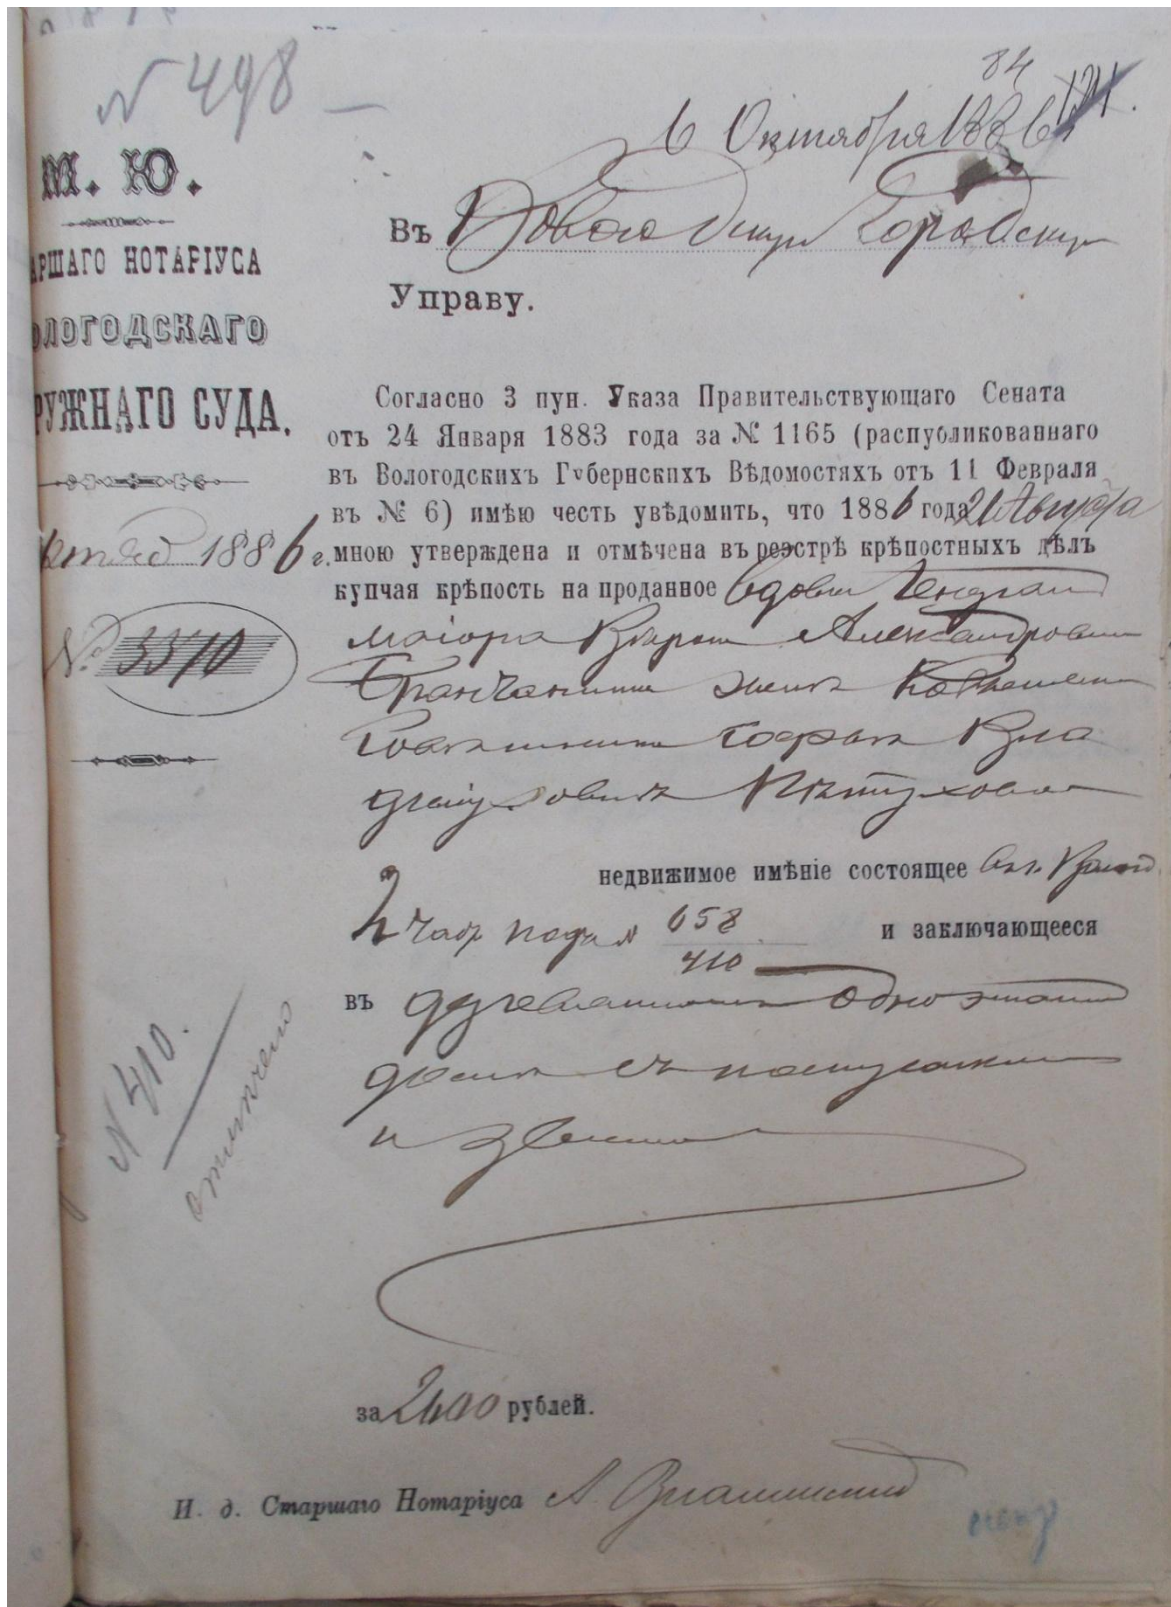 № 498
84
6 Октября 1886
М. Ю.
АРШАГО НОТАРІУСА
ОЛОГОДСКАГО
РУЖНАГО СУДА.
1886 г.
№ 3370
Въ Вологодскую Городскую
Управу.
Согласно 3 пун. Указа Правительствующаго Сената
отъ 24 Января 1883 года за № 1165 (распубликованнаго
въ Вологодскихъ Губернскихъ Вѣдомостяхъ отъ 11 Февраля
въ № 6) имѣю честь увѣдомить, что 1886 года 21 Августа
мною утверждена и отмѣчена въ реэстрѣ крѣпостныхъ дѣлъ
купчая крѣпость на проданное вдовы Генералъ
маіора Александровны
женѣ
Софьѣ Вла
диміровнѣ Пѣтуховой
недвижимое имѣніе состоящее въ г. Вологд.
2 части подъ № 658
410
и заключающееся
въ деревянномъ одноэтажн
домѣ съ постройками
и землею
№ 410.
отмѣчено
за 2400 рублей.
И. д. Старшаго Нотаріуса А.